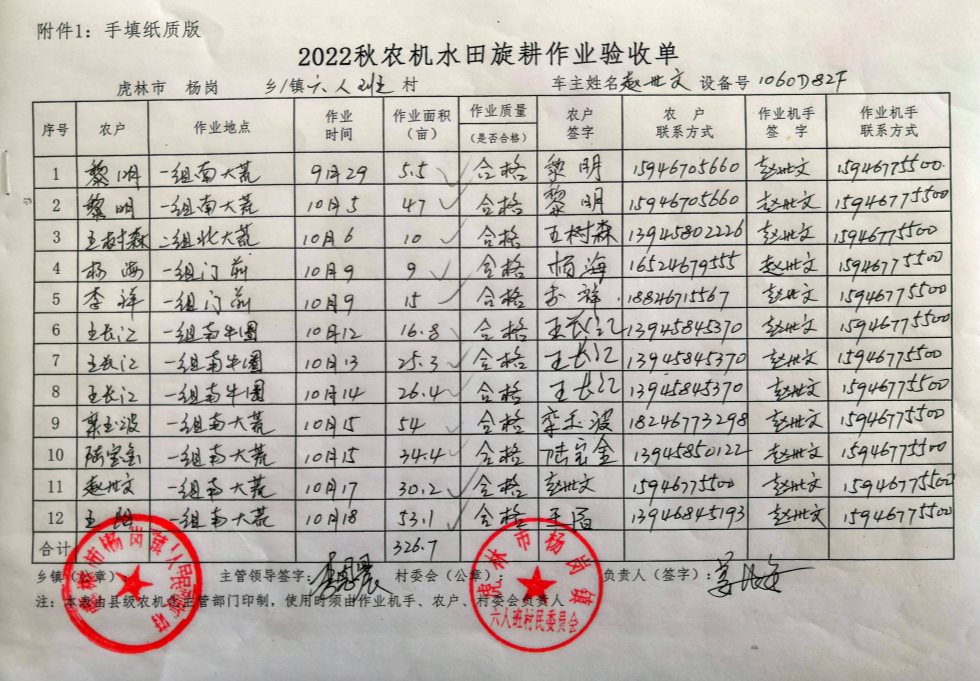 附件1：手填纸质版
2022秋农机水田旋耕作业验收单
虎林市 杨岗 乡/镇 六人班 村 车主姓名 赵世文 设备号 1060D82F
序号 农户 作业地点 作业时间 作业面积（亩） 作业质量（是否合格） 农户签字 农户联系方式 作业机手签字 作业机手联系方式
1 黎明 一组南大荒 9月29 5.5 合格 黎明 15946705660 赵世文 15946775500
2 黎明 一组南大荒 10月5 47 合格 黎明 15946705660 赵世文 15946775500
3 王树森 二组北大荒 10月6 10 合格 王树森 13945802226 赵世文 15946775500
4 杨海 一组门前 10月9 9 合格 杨海 16524679555 赵世文 15946775500
5 李祥 一组门前 10月9 15 合格 李祥 18846715567 赵世文 15946775500
6 王长江 一组南牛圈 10月12 16.8 合格 王长江 13945845370 赵世文 15946775500
7 王长江 一组南牛圈 10月13 25.3 合格 王长江 13945845370 赵世文 15946775500
8 王长江 一组南牛圈 10月14 26.4 合格 王长江 13945845370 赵世文 15946775500
9 栾玉波 一组南大荒 10月15 54 合格 栾玉波 18246773298 赵世文 15946775500
10 陆宝金 一组南大荒 10月15 34.4 合格 陆宝金 13945850122 赵世文 15946775500
11 赵世文 一组南大荒 10月17 30.2 合格 赵世文 15946775500 赵世文 15946775500
12 王 一组南大荒 10月18 53.1 合格 王 13946845193 赵世文 15946775500
合计 326.7
乡镇（公章）： 主管领导签字： 村委会（公章）： 负责人（签字）：
注：本表由县级农机化主管部门印制，使用时须由作业机手、农户、村委会负责人
虎林市杨岗镇人民政府
虎林市杨岗镇
六人班村民委员会